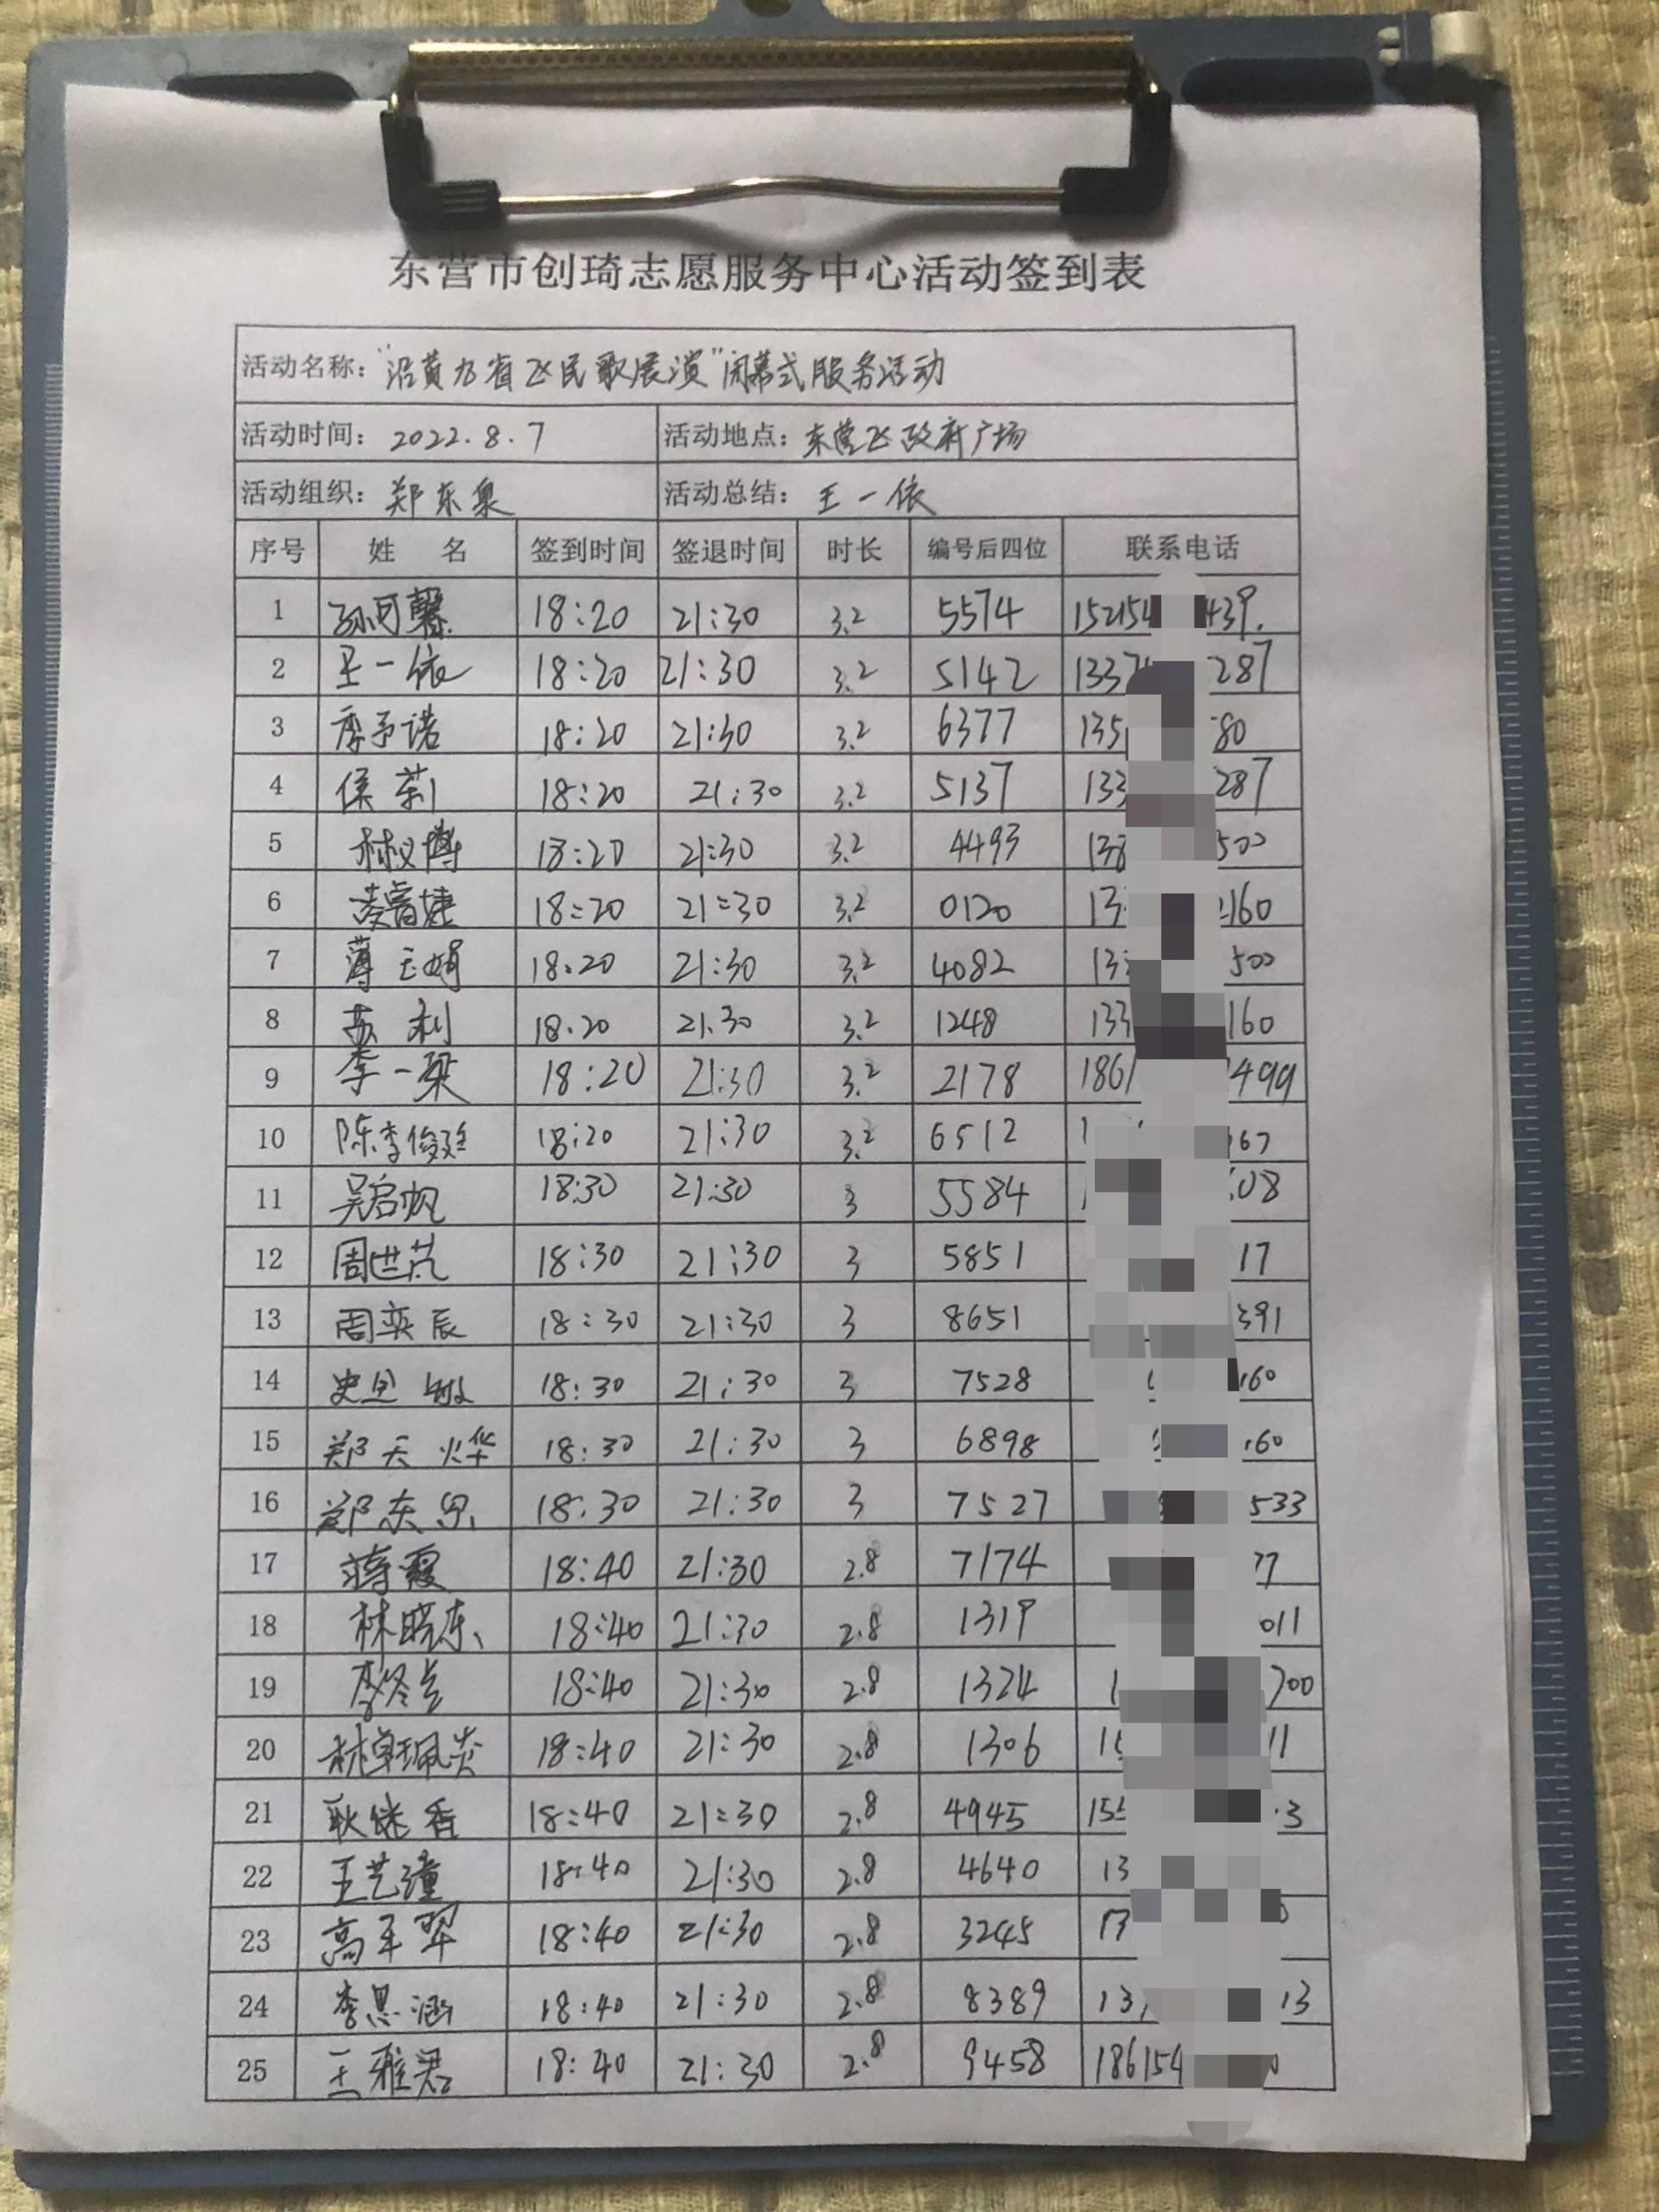 东营市创琦志愿服务中心活动签到表
活动名称："沿黄九省区民歌展演"闭幕式服务活动
活动时间：2022.8.7 活动地点：东营区政府广场
活动组织：郑东泉 活动总结：王一依
序号 姓 名 签到时间 签退时间 时长 编号后四位 联系电话
1 孙可馨 18:20 21:30 3.2 5574 152154 439
2 王一依 18:20 21:30 3.2 5142 1337 287
3 李予诺 18:20 21:30 3.2 6377 135 80
4 侯莉 18:20 21:30 3.2 5137 133 287
5 林义博 18:20 21:30 3.2 4493 138 500
6 18:20 21:30 3.2 0120 13 160
7 薄云娟 18.20 21:30 3.2 4082 13 500
8 苏利 18.20 21.30 3.2 1248 133 160
9 李一梁 18:20 21:30 3.2 2178 1861 499
10 陈李俊廷 18:20 21:30 3.2 6512 1 67
11 吴启帆 18:30 21:30 3 5584 1 08
12 周世芃 18:30 21:30 3 5851 17
13 周奕辰 18:30 21:30 3 8651 391
14 18:30 21:30 3 7528 160
15 郑天烨 18:30 21:30 3 6898 160
16 郑东泉 18:30 21:30 3 7527 533
17 蒋霞 18:40 21:30 2.8 7174 77
18 林晓东 18:40 21:30 2.8 1319 011
19 李冬兰 18:40 21:30 2.8 1324 1 700
20 18:40 21:30 2.8 1306 15 11
21 耿继香 18:40 21:30 2.8 4945 155 3
22 王艺潼 18:40 21:30 2.8 4640 13
23 18:40 21:30 2.8 3245 17
24 李思涵 18:40 21:30 2.8 8389 13 13
25 王雅君 18:40 21:30 2.8 9458 186154 0